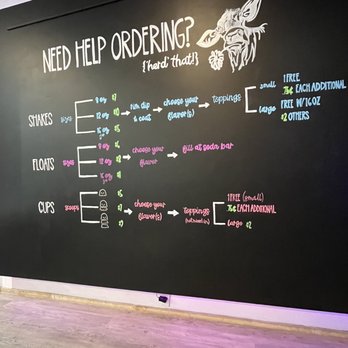 NEED HELP ORDERING?
{herd that!}
SHAKES
sizes
9 oz
12 oz
16 oz
rim dip & coat
choose your flavor(s)
toppings
small
1 FREE
75¢ EACH ADDITIONAL
large
1 FREE W/16OZ
$2 OTHERS
FLOATS
sizes
9 oz
12 oz
16 oz
choose your flavor
fill at soda bar
CUPS
scoops
choose your flavor(s)
toppings
1 FREE (small)
75¢ EACH ADDITIONAL
large $2